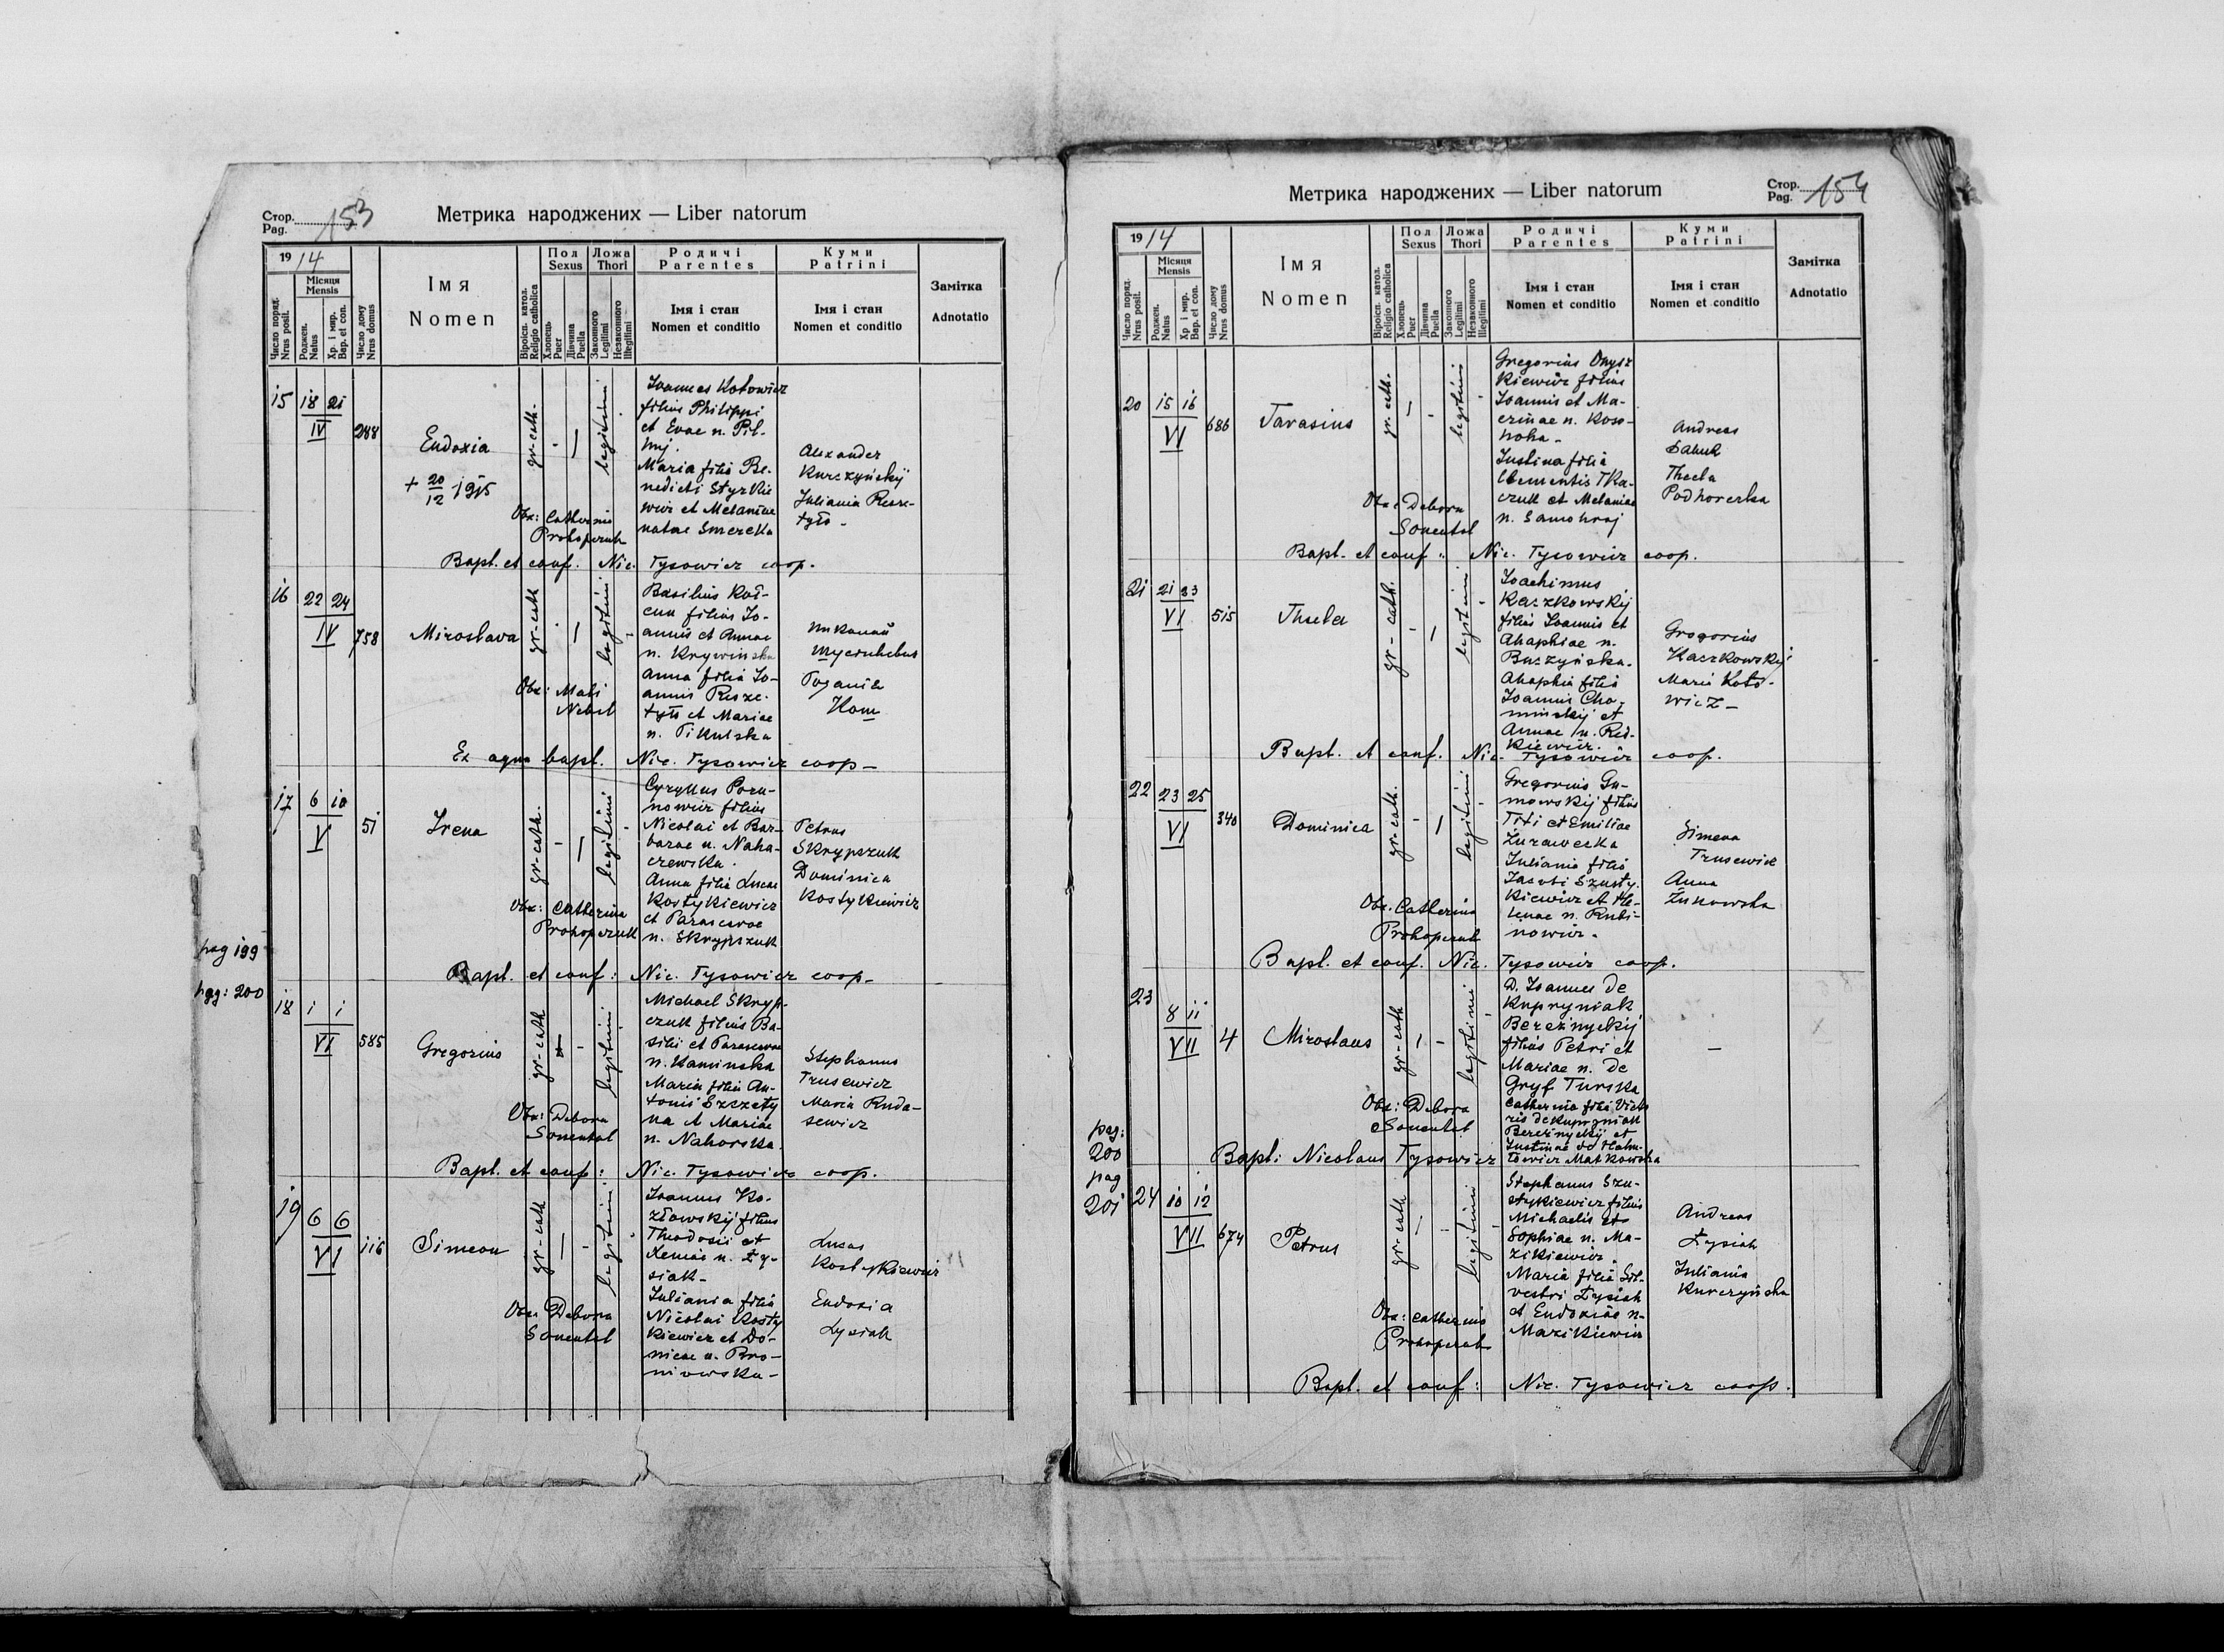 Стор. 153
Pag.
Метрика народжених — Liber natorum
1914
Місяця
Mensis
Число поряд.
Nrus posit.
Роджен.
Natus
Хр. і мир.
Bap. et con.
Число дому
Nrus domus
Імя
Nomen
Віроісп. катол.
Religio catholica
Пол
Sexus
Хлопець
Puer
Дівчина
Puella
Ложа
Thori
Законного
Legitimi
Незаконного
Illegitimi
Родичі
Parentes
Імя і стан
Nomen et conditio
Куми
Patrini
Імя і стан
Nomen et conditio
Замітка
Adnotatio
15 18 21
IV
288
Eudoxia
+ 20/12 1915
gr-cath.
legitimi
Ioannes Kotowicz
filius Philippi
et Evae n. Pil-
Maria filia Be-
nedicti Styrkie
wicz et Melaniae
natae Smereka
Alexander
Kurczyńskij
Juliania Resze-
tyło -
Obs: Catherina
Prokopczuk
Bapt. et conf. Nic. Tysowicz coop.
16 22 24
IV
758
Miroslava
gr-cath
legitimi
Basilius Koł-
cun filius Io-
annis et Annae
n. Krywinska
Anna filia Io-
annis Resze-
tyło et Mariae
n. Pikulska
Николай
Obs: Mali
Nebel
Ex aqua bapt. Nic. Tysowicz coop -
17 6 10
V
51
Irena
gr-cath.
legitimi
Cyryllus Poru-
nowicz filius
Nicolai et Bar-
barae n. Naha-
czewska.
Anna filia Lucae
Kostykiewicz
et Parascevae
n. Skrypszuk
Petrus
Skrypszuk
Dominica
Kostykiewicz
Obs: Catherina
Prokopczuk
pag 199
Bapt. et conf: Nic. Tysowicz coop -
pag: 200
18 1 1
VI
585
Gregorius
gr-cath
legitimi
Michael Skryp-
czuk filius Ba-
silii et Parascevae
n. Kaminska
Maria filia An-
tonii Szczety
na et Mariae
n. Nahorska
Stephanus
Trusewicz
Maria Ruda-
sewicz
Obs: Debora
Sonental
Bapt. et conf: Nic. Tysowicz coop.
19 6 6
VI
116
Simeon
gr-cath
legitimi
Ioannes Ko-
złowskij filius
Theodosii et
Xeniae n. Ły-
siak -
Juliania filia
Nicolai Kosty
kiewicz et Do-
nicae n. Bro-
niowska -
Lucas
Kostykiewicz
Eudoxia
Lysiak
Obs: Debora
Sonental
Стор. 154
Pag.
Метрика народжених — Liber natorum
1914
Місяця
Mensis
Число поряд.
Nrus posit.
Роджен.
Natus
Хр. і мир.
Bap. et con.
Число дому
Nrus domus
Імя
Nomen
Віроісп. катол.
Religio catholica
Пол
Sexus
Хлопець
Puer
Дівчина
Puella
Ложа
Thori
Законного
Legitimi
Незаконного
Illegitimi
Родичі
Parentes
Імя і стан
Nomen et conditio
Куми
Patrini
Імя і стан
Nomen et conditio
Замітка
Adnotatio
20 15 16
VI
686
Tarasius
gr-cath.
legitimi
Gregorius Onysz
kiewicz filius
Ioannis et Ma-
crinae n. Koso-
noha -
Justina filia
Clementis Tka-
czuk et Melaniae
n. Samohraj
Andreas
Thecla
Podhorecka
Obs: Debora
Sonental
Bapt. et conf: Nic. Tysowicz coop.
21 21 23
VI
515
Thecla
gr-cath.
legitimi
Ioachimus
Kaczkowskij
filius Ioannis et
Ahaphiae n.
Buczyńska.
Ahaphia filia
Ioannis Cho-
minskij et
Annae n. Red-
kiewicz.
Gregorius
Kaczkowskyj
Maria Koto-
wicz -
Bapt. et conf. Nic. Tysowicz coop.
22 23 25
VI
340
Dominica
gr-cath.
legitimi
Gregorius Gu-
mowskij filius
Titi et Emiliae
Żurawecka
Juliania filia
Jacobi Szusty-
kiewicz et He-
lenae n. Rubi-
nowicz.
Simeon
Trusewicz
Anna
Żukowska
Obs. Catherina
Prokopczuk
Bapt. et conf. Nic. Tysowicz coop.
23 8 11
VII
4
Miroslaus
gr-cath
legitimi
D. Ioannes de
Kupryniak
Bereżnyckij
filius Petri et
Mariae n. de
Gryf Turska
Catherina filia Victo
ris de Kupryniak
Bereżnyckij et
Justinae de Hatu-
łowicz Matkowska
—
Obs: Debora
Sonental
pag:
200
Bapt: Nicolaus Tysowicz
pag
201
24 10 12
VII
674
Petrus
gr-cath
legitimi
Stephanus Szu-
stykiewicz filius
Michaelis et
Sophiae n. Ma-
zikiewicz.
Maria filia Sil-
vestri Łysiak
et Eudoxiae n.
Mazikiewicz
Andreas
Łysiak
Juliania
Kurczyńska
Obs: Catherina
Prokopczuk
Bapt. et conf: Nic. Tysowicz coop.